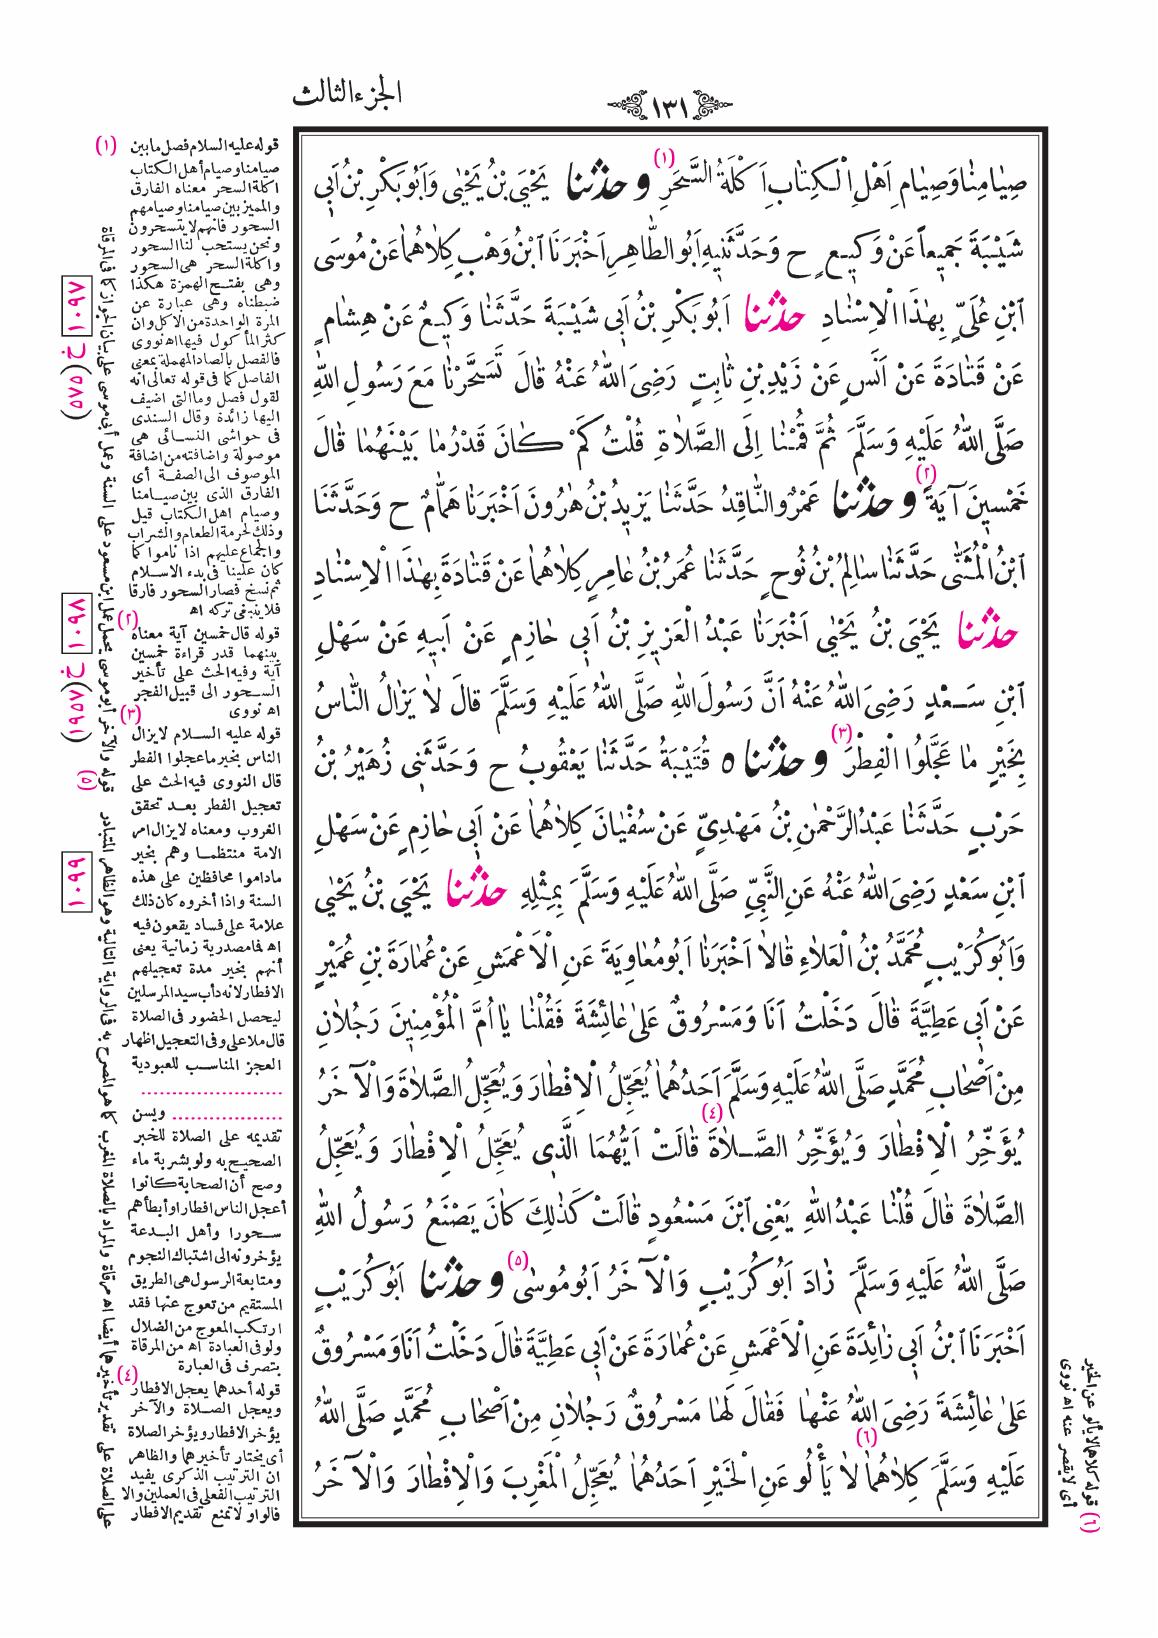 ١٣١
الجزء الثالث
صِيَامِنَا وَصِيَامِ اَهْلِ الْكِتَابِ اَكْلَةُ السَّحَرِ (١) وحدثنا يَحْيَى بْنُ يَحْيَى وَاَبُو بَكْرِ بْنُ اَبِى
شَيْبَةَ جَمِيعاً عَنْ وَكِيعٍ ح وَحَدَّثَنِيهِ اَبُو الطَّاهِرِ اَخْبَرَنَا ابْنُ وَهْبٍ كِلَاهُمَا عَنْ مُوسَى
ابْنِ عُلَىٍّ بِهٰذَا الْاِسْنَادِ حدثنا اَبُو بَكْرِ بْنُ اَبِى شَيْبَةَ حَدَّثَنَا وَكِيعٌ عَنْ هِشَامٍ
عَنْ قَتَادَةَ عَنْ اَنَسٍ عَنْ زَيْدِ بْنِ ثَابِتٍ رَضِىَ اللّٰهُ عَنْهُ قَالَ تَسَحَّرْنَا مَعَ رَسُولِ اللّٰهِ
صَلَّى اللّٰهُ عَلَيْهِ وَسَلَّمَ ثُمَّ قُمْنَا اِلَى الصَّلَاةِ قُلْتُ كَمْ كَانَ قَدْرُ مَا بَيْنَهُمَا قَالَ
خَمْسِينَ آيَةً (٢) وحدثنا عَمْرٌو النَّاقِدُ حَدَّثَنَا يَزِيدُ بْنُ هَرُونَ اَخْبَرَنَا هَمَّامٌ ح وَحَدَّثَنَا
ابْنُ الْمُثَنَّى حَدَّثَنَا سَالِمُ بْنُ نُوحٍ حَدَّثَنَا عُمَرُ بْنُ عَامِرٍ كِلَاهُمَا عَنْ قَتَادَةَ بِهٰذَا الْاِسْنَادِ
حدثنا يَحْيَى بْنُ يَحْيَى اَخْبَرَنَا عَبْدُ الْعَزِيزِ بْنُ اَبِى حَازِمٍ عَنْ اَبِيهِ عَنْ سَهْلِ
ابْنِ سَعْدٍ رَضِىَ اللّٰهُ عَنْهُ اَنَّ رَسُولَ اللّٰهِ صَلَّى اللّٰهُ عَلَيْهِ وَسَلَّمَ قَالَ لَا يَزَالُ النَّاسُ
بِخَيْرٍ مَا عَجَّلُوا الْفِطْرَ (٣) وحدثنا ٥ قُتَيْبَةُ حَدَّثَنَا يَعْقُوبُ ح وَحَدَّثَنِى زُهَيْرُ بْنُ
حَرْبٍ حَدَّثَنَا عَبْدُ الرَّحْمٰنِ بْنُ مَهْدِىٍّ عَنْ سُفْيَانَ كِلَاهُمَا عَنْ اَبِى حَازِمٍ عَنْ سَهْلِ
ابْنِ سَعْدٍ رَضِىَ اللّٰهُ عَنْهُ عَنِ النَّبِىِّ صَلَّى اللّٰهُ عَلَيْهِ وَسَلَّمَ بِمِثْلِهِ حدثنا يَحْيَى بْنُ يَحْيَى
وَاَبُو كُرَيْبٍ مُحَمَّدُ بْنُ الْعَلَاءِ قَالَا اَخْبَرَنَا اَبُو مُعَاوِيَةَ عَنِ الْاَعْمَشِ عَنْ عُمَارَةَ بْنِ عُمَيْرٍ
عَنْ اَبِى عَطِيَّةَ قَالَ دَخَلْتُ اَنَا وَمَسْرُوقٌ عَلَى عَائِشَةَ فَقُلْنَا يَا اُمَّ الْمُؤْمِنِينَ رَجُلَانِ
مِنْ اَصْحَابِ مُحَمَّدٍ صَلَّى اللّٰهُ عَلَيْهِ وَسَلَّمَ اَحَدُهُمَا يُعَجِّلُ الْاِفْطَارَ وَيُعَجِّلُ الصَّلَاةَ وَالْآخَرُ
يُؤَخِّرُ الْاِفْطَارَ وَيُؤَخِّرُ الصَّلَاةَ (٤) قَالَتْ اَيُّهُمَا الَّذِى يُعَجِّلُ الْاِفْطَارَ وَيُعَجِّلُ
الصَّلَاةَ قَالَ قُلْنَا عَبْدُ اللّٰهِ يَعْنِى ابْنَ مَسْعُودٍ قَالَتْ كَذٰلِكَ كَانَ يَصْنَعُ رَسُولُ اللّٰهِ
صَلَّى اللّٰهُ عَلَيْهِ وَسَلَّمَ زَادَ اَبُو كُرَيْبٍ وَالْآخَرُ اَبُو مُوسَى (٥) وحدثنا اَبُو كُرَيْبٍ
اَخْبَرَنَا ابْنُ اَبِى زَائِدَةَ عَنِ الْاَعْمَشِ عَنْ عُمَارَةَ عَنْ اَبِى عَطِيَّةَ قَالَ دَخَلْتُ اَنَا وَمَسْرُوقٌ
عَلَى عَائِشَةَ رَضِىَ اللّٰهُ عَنْهَا فَقَالَ لَهَا مَسْرُوقٌ رَجُلَانِ مِنْ اَصْحَابِ مُحَمَّدٍ صَلَّى اللّٰهُ
عَلَيْهِ وَسَلَّمَ كِلَاهُمَا (٦) لَا يَأْلُو عَنِ الْخَيْرِ اَحَدُهُمَا يُعَجِّلُ الْمَغْرِبَ وَالْاِفْطَارَ وَالْآخَرُ
(١) قوله عليه السلام فصل ما بين
صيامنا وصيام أهل الكتاب
اكلة السحر معناه الفارق
والمميز بين صيامنا وصيامهم
السحور فانهم لا يتسحرون
ونحن يستحب لنا السحور
واكلة السحر هى السحور
وهى بفتح الهمزة هكذا
ضبطناه وهى عبارة عن
المرة الواحدة من الاكل وان
كثر المأكول فيها اه نووى
فالفصل بالصاد المهملة بمعنى
الفاصل كما فى قوله تعالى انه
لقول فصل وما التى اضيف
اليها زائدة وقال السندى
فى حواشى النسائى هى
موصولة واضافته من اضافة
الموصوف الى الصفة أى
الفارق الذى بين صيامنا
وصيام اهل الكتاب قيل
وذلك لحرمة الطعام والشراب
والجماع عليهم اذا ناموا كما
كان علينا فى بدء الاسلام
ثم نسخ فصار السحور فارقا
فلا ينبغى تركه اه
(٢) قوله قال خمسين آية معناه
بينهما قدر قراءة خمسين
آية وفيه الحث على تأخير
السحور الى قبيل الفجر
اه نووى
(٣) قوله عليه السلام لا يزال
الناس بخير ما عجلوا الفطر
قال النووى فيه الحث على
تعجيل الفطر بعد تحقق
الغروب ومعناه لا يزال امر
الامة منتظما وهم بخير
ماداموا محافظين على هذه
السنة واذا أخروه كان ذلك
علامة على فساد يقعون فيه
اه فما مصدرية زمانية يعنى
أنهم بخير مدة تعجيلهم
الافطار لانه دأب سيد المرسلين
ليحصل الحضور فى الصلاة
قال ملا على وفى التعجيل اظهار
العجز المناسب للعبودية
ويسن
تقديمه على الصلاة للخبر
الصحيح به ولو بشربة ماء
وصح أن الصحابة كانوا
أعجل الناس افطارا وأبطأهم
سحورا وأهل البدعة
يؤخرونه الى اشتباك النجوم
ومتابعة الرسول هى الطريق
المستقيم من تعوج عنها فقد
ارتكب المعوج من الضلال
ولو فى العبادة اه من المرقاة
بتصرف فى العبارة
(٤) قوله أحدهما يعجل الافطار
ويعجل الصلاة والآخر
يؤخر الافطار ويؤخر الصلاة
أى يختار تأخيرهما والظاهر
ان الترتيب الذكرى يفيد
الترتيب الفعلى فى العملين والا
فالواو لا تمنع تقديم الافطار
على الصلاة على تقدير تأخيرهما أيضا اه مرقاة والمراد بالصلاة المغرب كما هو المصرح به فى الرواية التالية وهو الظاهر المتبادر
(٥) قوله والآخر أبو موسى يحمل عمل ابن مسعود على السنة وعمل أبى موسى على بيان الجواز كما فى المرقاة
١٠٩٨
ج (٥٨٥)
١٠٩٧
ج (٨٥٦١)
١٠٩٩
(٦) قوله كلاهما لا يألو عن الخير
أى لا يقصر عنه اه نووى